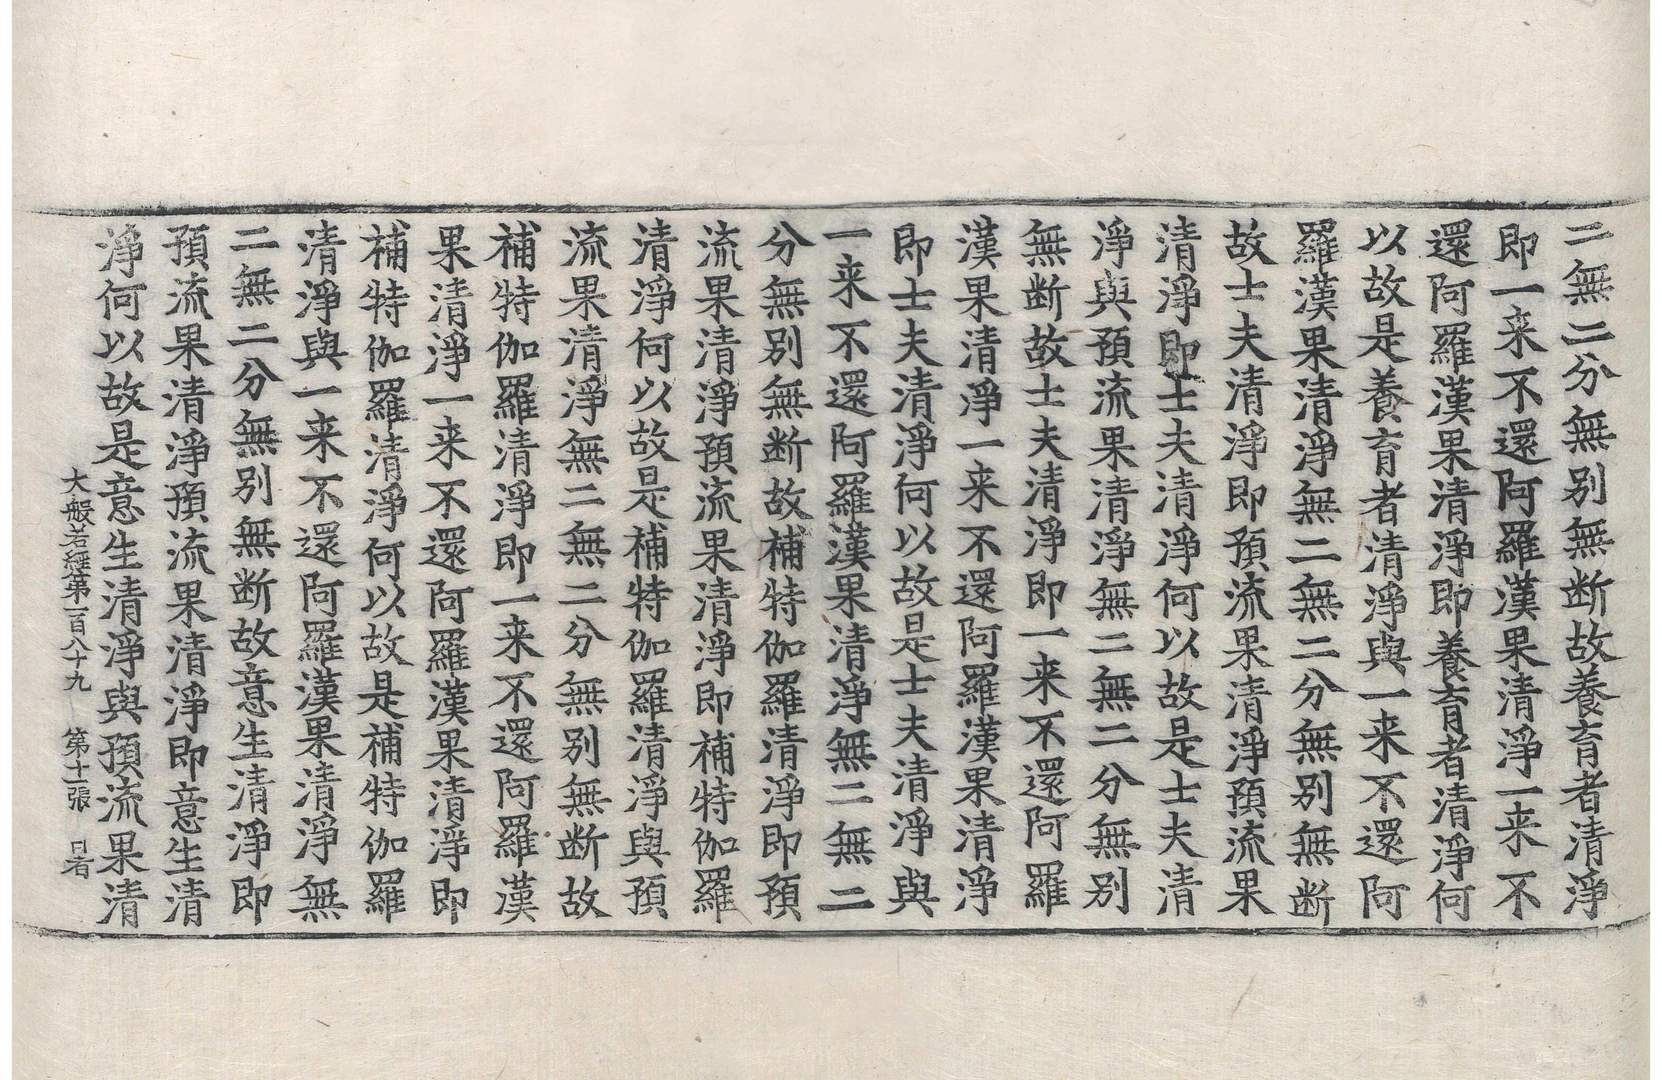 二無二分無別無断故養育者清淨
即一来不還阿羅漢果清淨一来不
還阿羅漢果清淨即養育者清淨何
以故是養育者清淨與一来不還阿
羅漢果清淨無二無二分無別無断
故士夫清淨即預流果清淨預流果
清淨即士夫清淨何以故是士夫清
淨與預流果清淨無二無二分無別
無断故士夫清淨即一来不還阿羅
漢果清淨一来不還阿羅漢果清淨
即士夫清淨何以故是士夫清淨與
一来不還阿羅漢果清淨無二無二
分無別無断故補特伽羅清淨即預
流果清淨預流果清淨即補特伽羅
清淨何以故是補特伽羅清淨與預
流果清淨無二無二分無別無断故
補特伽羅清淨即一来不還阿羅漢
果清淨一来不還阿羅漢果清淨即
補特伽羅清淨何以故是補特伽羅
清淨與一来不還阿羅漢果清淨無
二無二分無別無断故意生清淨即
預流果清淨預流果清淨即意生清
淨何以故是意生清淨與預流果清
大般若經第一百八十九 第十一張